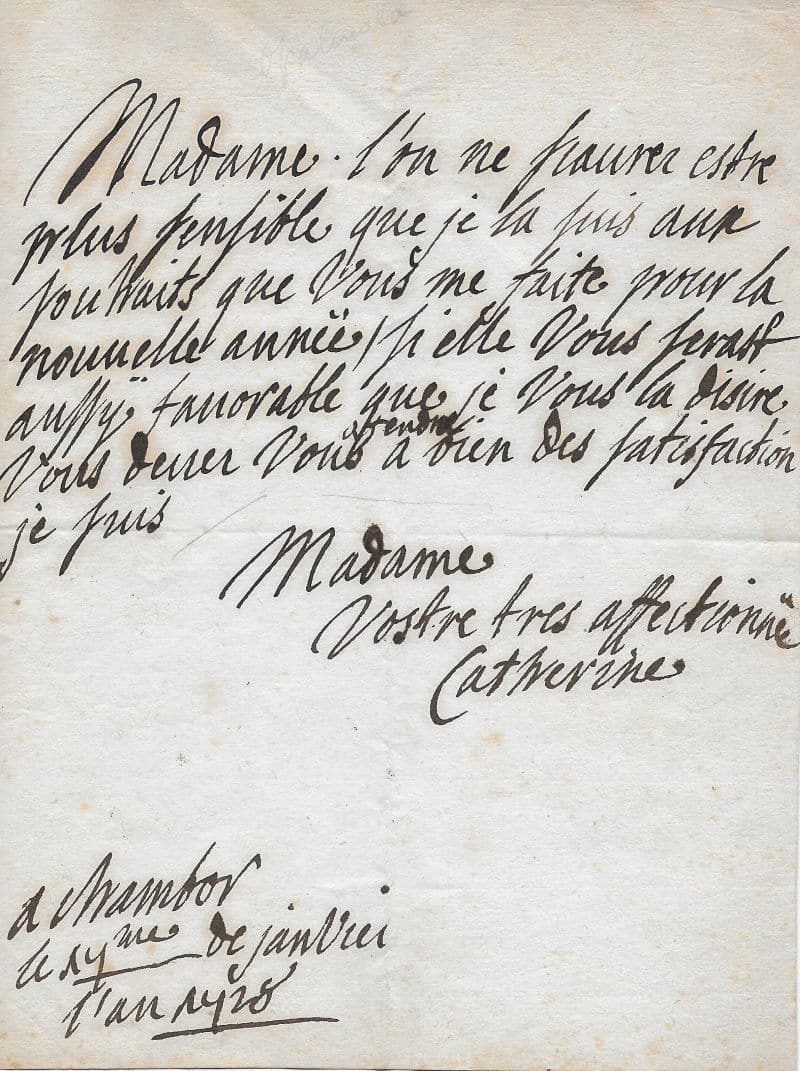 Madame. l'on ne sauret estre
plus sensible que je la suis aux
souhaits que Vous me faite pour la
nouuelle année, si elle Vous serast
aussÿ fauorable que je Vous la disire
attendre
Vous deuer Vous à bien des satisfaction
je suis
Madame
Vostre tres affectionnëe
Catherine
a chambor
le 17me de janVier
l'an 1728